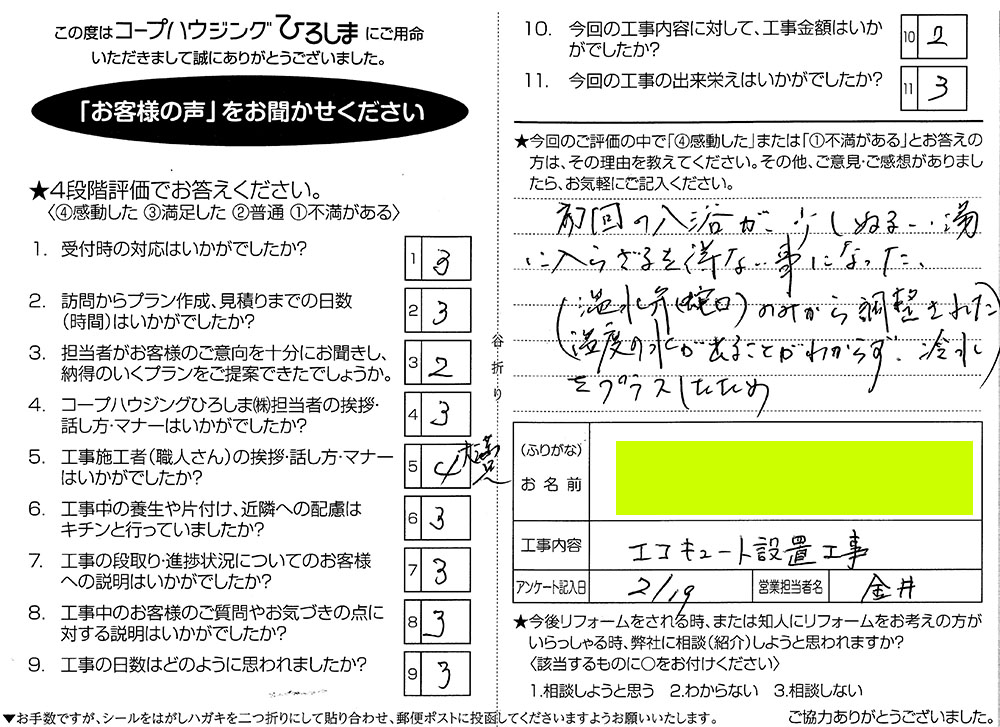 この度はコープハウジングひろしまにご用命
いただきまして誠にありがとうございました。
「お客様の声」をお聞かせください
★4段階評価でお答えください。
〈④感動した ③満足した ②普通 ①不満がある〉
1. 受付時の対応はいかがでしたか?
1 3
2. 訪問からプラン作成、見積りまでの日数
（時間）はいかがでしたか?
2 3
3. 担当者がお客様のご意向を十分にお聞きし、
納得のいくプランをご提案できたでしょうか。
3 2
4. コープハウジングひろしま㈱担当者の挨拶・
話し方・マナーはいかがでしたか?
4 3
5. 工事施工者（職人さん）の挨拶・話し方・マナー
はいかがでしたか?
5 4
6. 工事中の養生や片付け、近隣への配慮は
キチンと行っていましたか?
6 3
7. 工事の段取り・進捗状況についてのお客様
への説明はいかがでしたか?
7 3
8. 工事中のお客様のご質問やお気づきの点に
対する説明はいかがでしたか?
8 3
9. 工事の日数はどのように思われましたか?
9 3
▼お手数ですが、シールをはがしハガキを二つ折りにして貼り合わせ、郵便ポストに投函してくださいますようお願いいたします。
谷折り
10. 今回の工事内容に対して、工事金額はいか
がでしたか?
10 2
11. 今回の工事の出来栄えはいかがでしたか?
11 3
★今回のご評価の中で「④感動した」または「①不満がある」とお答えの
方は、その理由を教えてください。その他、ご意見・ご感想がありまし
たら、お気軽にご記入ください。
初回の入浴が、少しぬるい湯
に入らざるを得ない事になった。
(温水弁(蛇口)のみから調整された
(温度の水があることがわからず、冷水
をプラスしたため
（ふりがな）
お名前
工事内容 エコキュート設置工事
アンケート記入日 2/19 営業担当者名 金井
★今後リフォームをされる時、または知人にリフォームをお考えの方が
いらっしゃる時、弊社に相談（紹介）しようと思われますか?
〈該当するものに○をお付けください〉
1.相談しようと思う 2.わからない 3.相談しない
ご協力ありがとうございました。